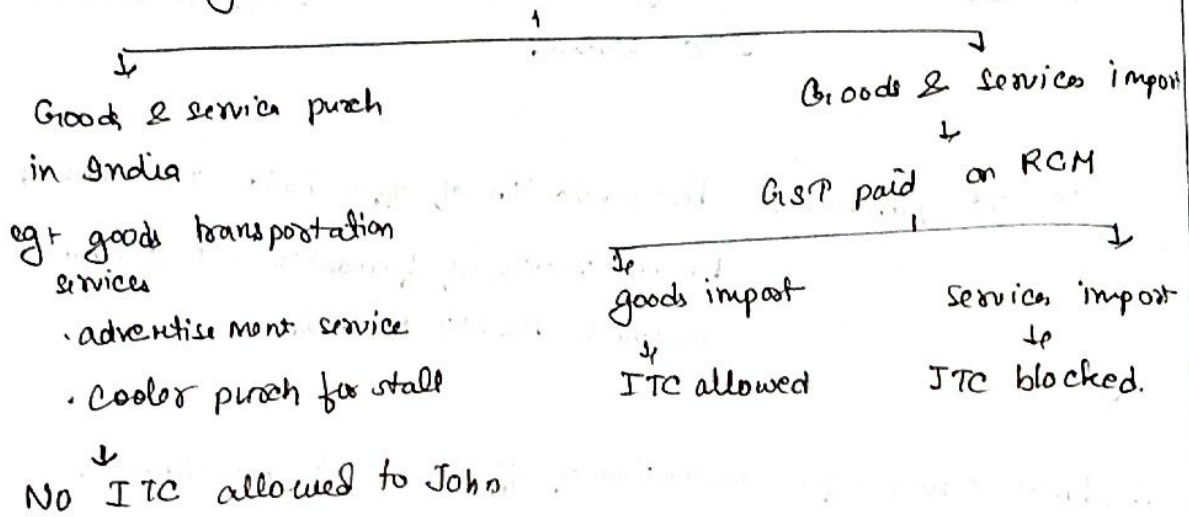 Goods & service purch
in India
eg:- goods transportation
services
. advertisement service
. Cooler purch for stall
No ITC allowed to John.
Goods & Services import
GST paid on RCM
goods import
ITC allowed
Services import
ITC blocked.